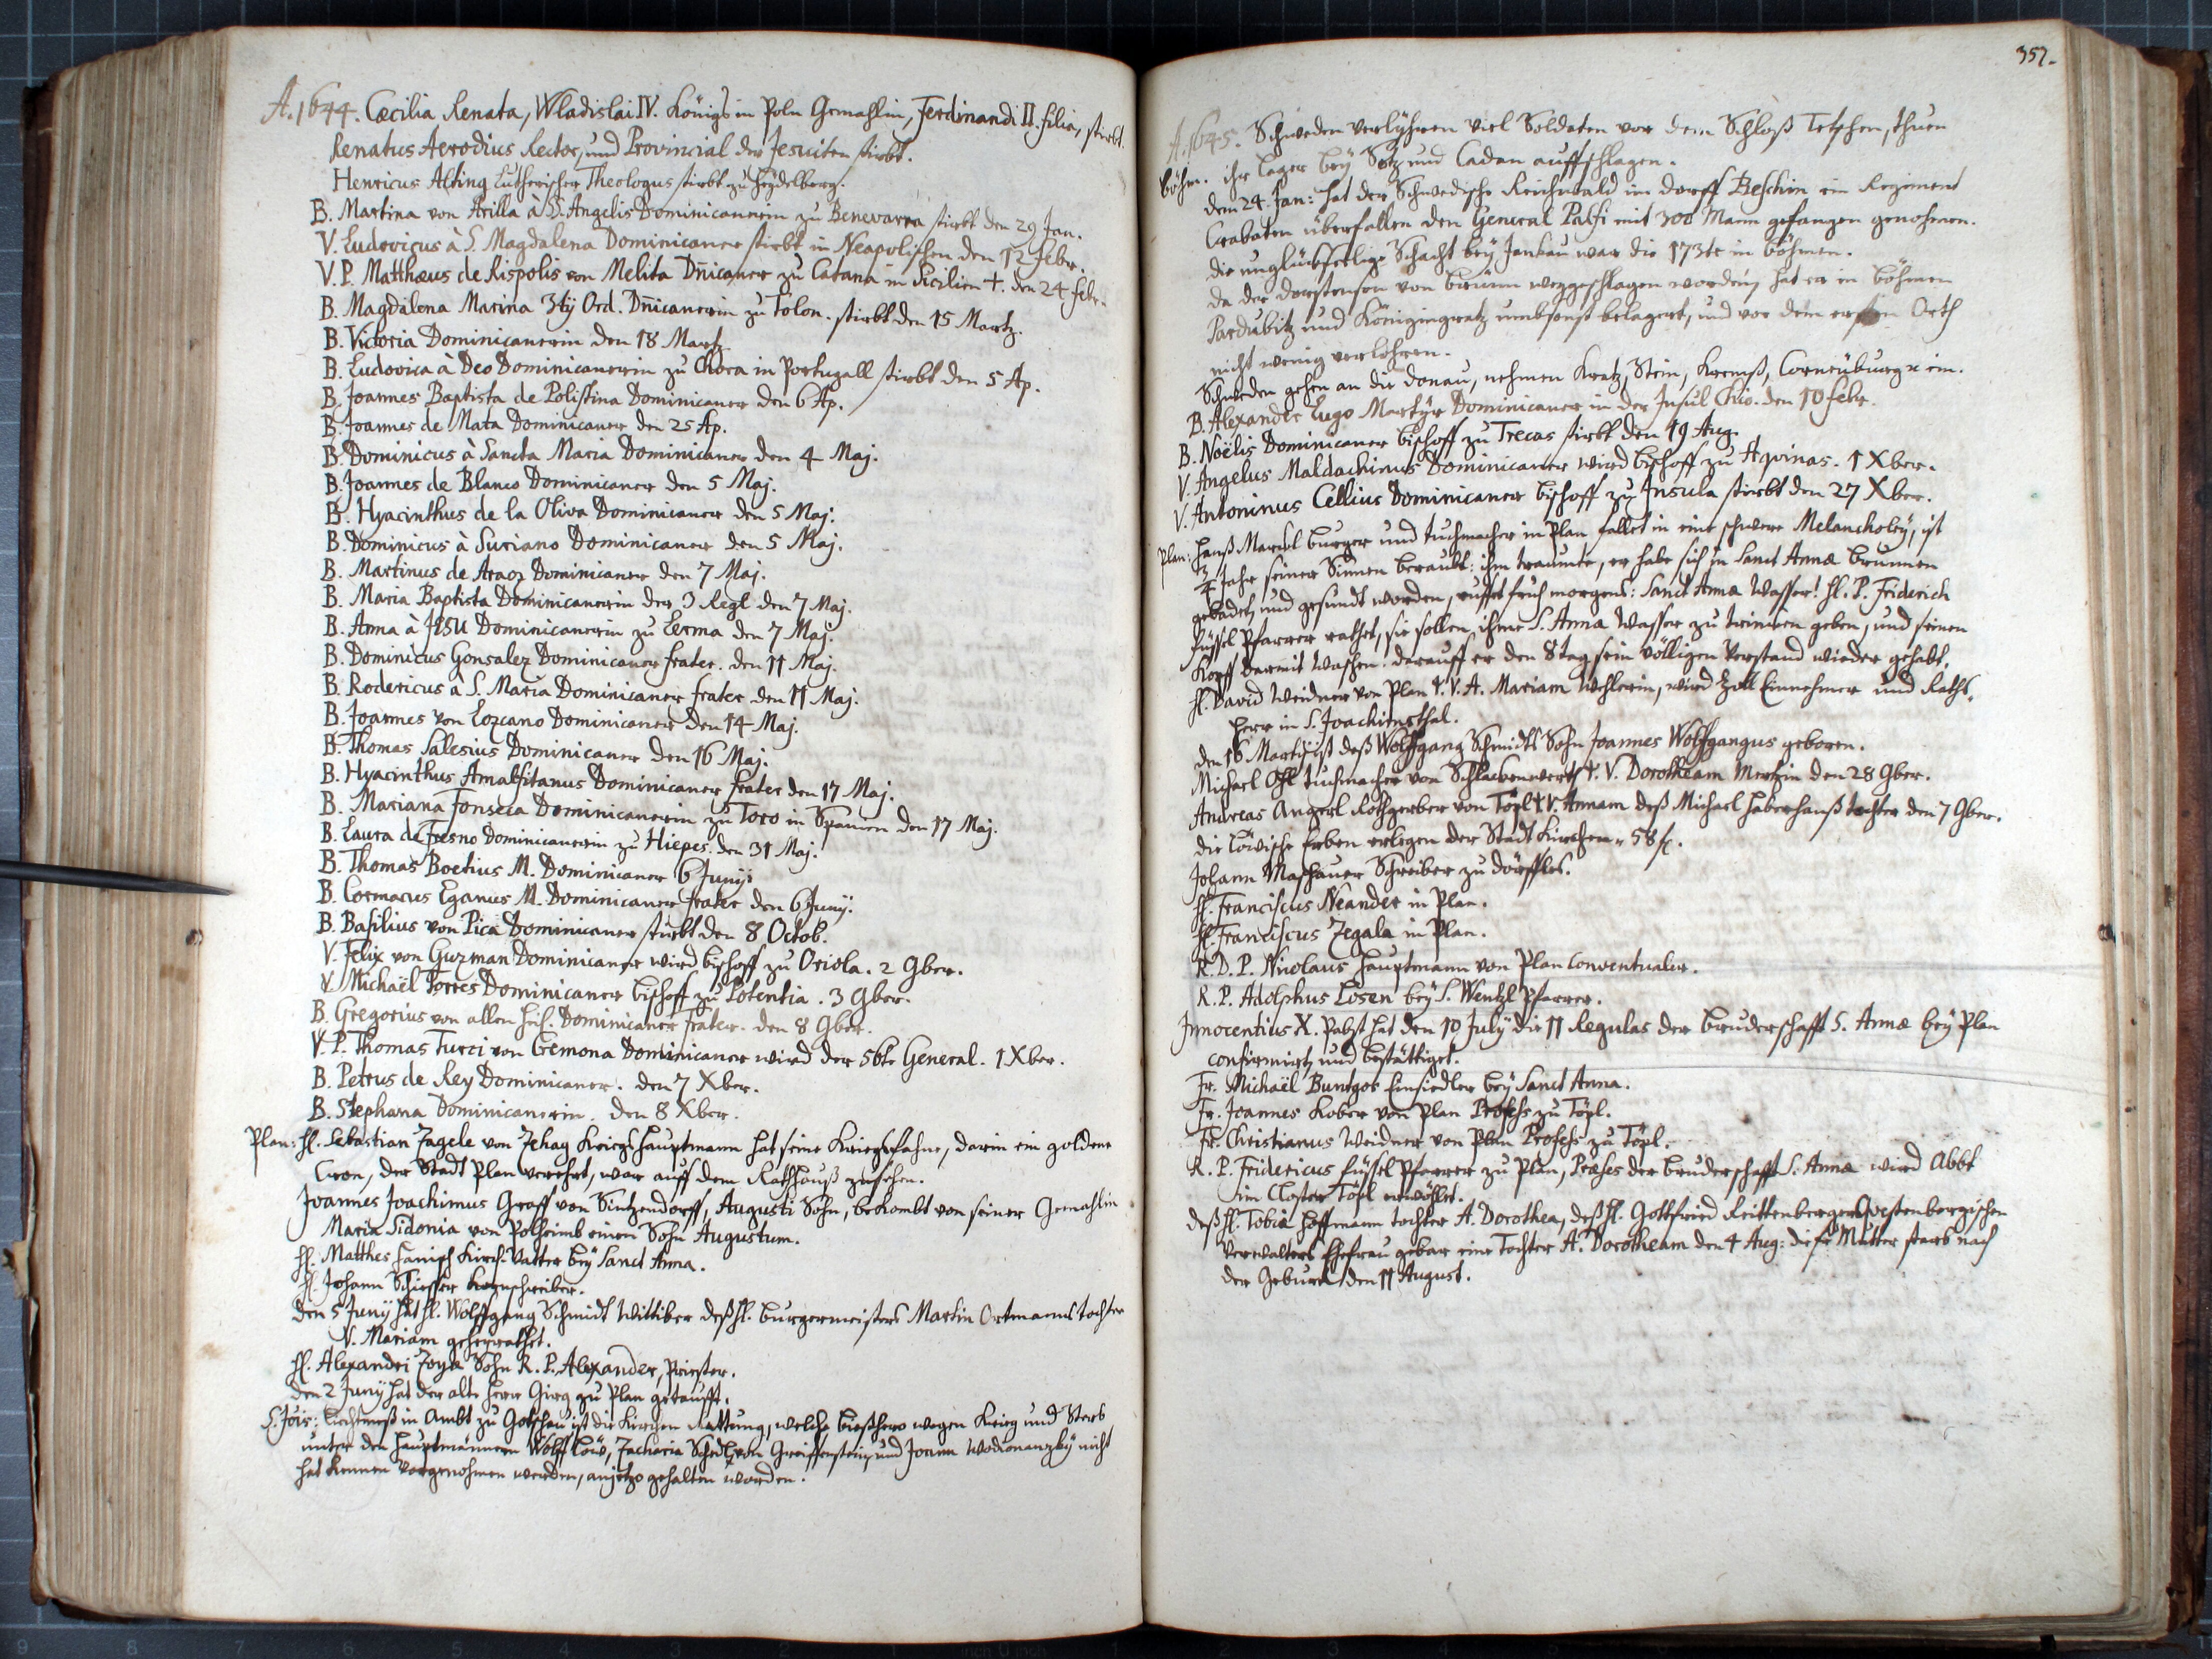 A. 1644. Cæcilia Renata, Wladislai IV. Königs in Poln Gemahlin, Ferdinandi II. filia, stirbt.
Renatus Aerodius Rector, und Provincial der Jesuiten stirbt.
Henricus Alting Lutherischer Theologus stirbt zu Heydelberg.
B. Martina von Arilla à S. Angelis Dominicanerin zu Benevarra stirbt den 29 Jan.
V. Ludovicus à S. Magdalena Dominicaner stirbt in Neapolischen den 12 Febr.
V. P. Matthæus de Rispolis von Melita Dn̄icaner zu Catana in Sicilien †. den 24 febr.
B. Magdalena Marina 3tÿ Ord. Dn̄icanerin zu Tolon. stirbt den 15 Martz.
B. Victoria Dominicanerin den 18 Martz
B. Ludovica à Deo Dominicanerin zu Chora in Portugall stirbt den 5 Ap.
B. Joannes Baptista de Polistina Dominicaner den 6 Ap.
B. Joannes de Mata Dominicaner den 25 Ap.
B. Dominicus à Sancta Maria Dominicaner den 4 Maj.
B. Joannes de Blanco Dominicaner den 5 Maj.
B. Hyacinthus de la Oliva Dominicaner den 5 Maj.
B. Dominicus à Suriano Dominicaner den 5 Maj.
B. Martinus de Araoz Dominicaner den 7 Maj.
B. Maria Baptista Dominicanerin der 3 Regl den 7 Maj.
B. Anna à JESU Dominicanerin zu Lerma den 7 Maj.
B. Dominicus Gonsalez Dominicaner frater. den 11 Maj.
B. Rodericus à S. Maria Dominicaner frater den 11 Maj.
B. Joannes von Lozcano Dominicaner den 14 Maj.
B. Thomas Salesius Dominicaner den 16 Maj.
B. Hyacinthus Amalfitanus Dominicaner frater den 17 Maj.
B. Mariana Fonseca Dominicanerin zu Toro in Spanien den 17 Maj.
B. Laura de Fresno Dominicanerin zu Hiepes. den 31 Maj.
B. Thomas Boetius M. Dominicaner 6 Junÿ.
B. Cormacus Eganus M. Dominicaner frater den 6 Junÿ.
B. Basilius von Pica Dominicaner stirbt den 8 Octob.
V. Felix von Guzman Dominicaner wird bischoff zu Oriola. 2 9ber.
V. Michaël Torres Dominicaner bischoff zu Potentia. 3 9ber.
B. Gregorius von allen heil. Dominicaner frater. den 8 9ber.
V. P. Thomas Turci von Cremona Dominicaner wird der 56te General. 1 Xber.
B. Petrus de Rey Dominicaner. den 7 Xber.
B. Stephana Dominicanerin. den 8 Xber.
Plan: H. Sebastian Zagele von Zehag Kriegshauptmann hat seine Kriegsfahne, darin ein goldene
Cron, der Stadt Plan verehrt, war auff dem Rathhauß zusehen.
Joannes Joachimus Graff von Sintzendorff, Augusti Sohn, bekombt von seiner Gemahlin
Maria Sidonia von Polheimb einen Sohn Augustum.
H. Matthes Hanisch Kirch-Vatter beÿ Sanct Anna.
H. Johann Schiesser Kornschreiber.
den 5 Junÿ hat H. Wolffgang Schmidt Wittiber deß H. burgermeisters Martin Ortmanns tochter
V. Mariam geheÿrathet.
H. Alexandri Zoya Sohn R. P. Alexander, Priester.
den 2 Junÿ hat der alte Herr Girg zu Plan getaufft.
S. Jois: Liechtmeß in Ambt zu Gotschau ist die Kirchen Raittung, welche bißhero wegen Krieg und Sterb
unter den Hauptmännern Wolff Löw, Zacharia Schedl von Greiffenstein, und Joann Wodionanzkÿ nicht
hat können vorgenohmen werden, anjetzo gehalten worden.
357.
A. 1645. Schweden verlÿhren viel Soldaten vor dem Schloß Tetschen, thuen
Böhm. ihr Lager beÿ Satz und Cadan auffschlagen.
den 24. Jan: hat der Schwedische Reichwald im dorff Beschin ein Regiment
Crabaten überfallen den General Palfi mit 300 Mann gefangen genohmen.
die unglückseelige Schlacht beÿ Jankau war die 173te in böhmen.
da der Dorstenson von Brünn weggeschlagen worden, hat er in böhmen
Pardubitz und Königingratz umbsonst belagert, und vor dem ersten Orth
nicht wenig verlohren.
Schweden gehen an die Donau, nehmen Kratz, Stein, Kremß, Corneüburg ꝛc ein.
B. Alexander Lugo Martÿr Dominicaner in der Insul Chio. den 10 febr.
B. Noëlis Dominicaner bischoff zu Trecas stirbt den 19 Aug.
V. Angelus Maldachinus Dominicaner wird bischoff zu Aquinas. 1 Xber.
V. Antoninus Cellius Dominicaner bischoff zu Insula stirbt den 27 Xber.
Plan: Hanß Marckl burger und tuchmacher in Plan fallet in eine schwere Melancholeÿ, ist
3/4 Jahr seiner Sinnen beraubt: ihm traumte, er habe sich in Sanct Annæ brunnen
gebadet, und gesundt worden, ruffet fruh morgens: Sanct Anna Wasser! H. P. Friderich
Füssel Pfarrer rathet, sie sollen ihme S. Annæ Wasser zu trincken geben, und seinen
Kopff darmit waschen. darauff er den 8 tag sein völligen Verstand wieder gehabt.
H. David Weidner von Plan †. V. A. Mariam Wehlerin, wird Zoll Einnehmer und Raths,
Herr in S. Joachimsthal.
den 16 Martÿ ist deß Wolffgang Schmidts Sohn Joannes Wolffgangus geboren.
Michael Ohl tuchmacher von Schlackenwerth †. V. Dorotheam Merkin den 28 9ber.
Andreas Angerl Rothgerber von Töpl † V. Annam deß Michael Haberhanß tochter den 7 9ber.
die Löwische Erben erlegen der Stadt Kirchen 58 fl.
Johann Maschauer Schreiber zu dörfles.
H. Franciscus Neander in Plan.
H. Franciscus Zegala in Plan.
R. D. P. Nicolaus Hauptmann von Plan Conventualer.
R. P. Adolphus Losen beÿ S. Wentzl Pfarrer.
Innocentius X. Pabst hat den 10 Julÿ die 11 Regulas der bruderschafft S. Annæ beÿ Plan
confirmirt, und bestättiget.
Fr. Michaël Buntgos Einsiedler beÿ Sanct Anna.
Fr. Joannes Kober von Plan Profess zu Töpl.
Fr. Christianus Weidner von Plan Profess zu Töpl.
R. P. Fridericus Füssel Pfarrer zu Plan, Præses der bruderschafft S. Annæ wird Abbt
im Closter Töpl erwöhlet.
deß H. Tobiæ Hoffmann tochter A. Dorothea, deß H. Gottfried Reittenberger Qvestenbergischen
Verwalters Ehefrau gebar eine Tochter A. Dorotheam den 4 Aug: diese Mutter starb nach
der Geburth den 11 August.